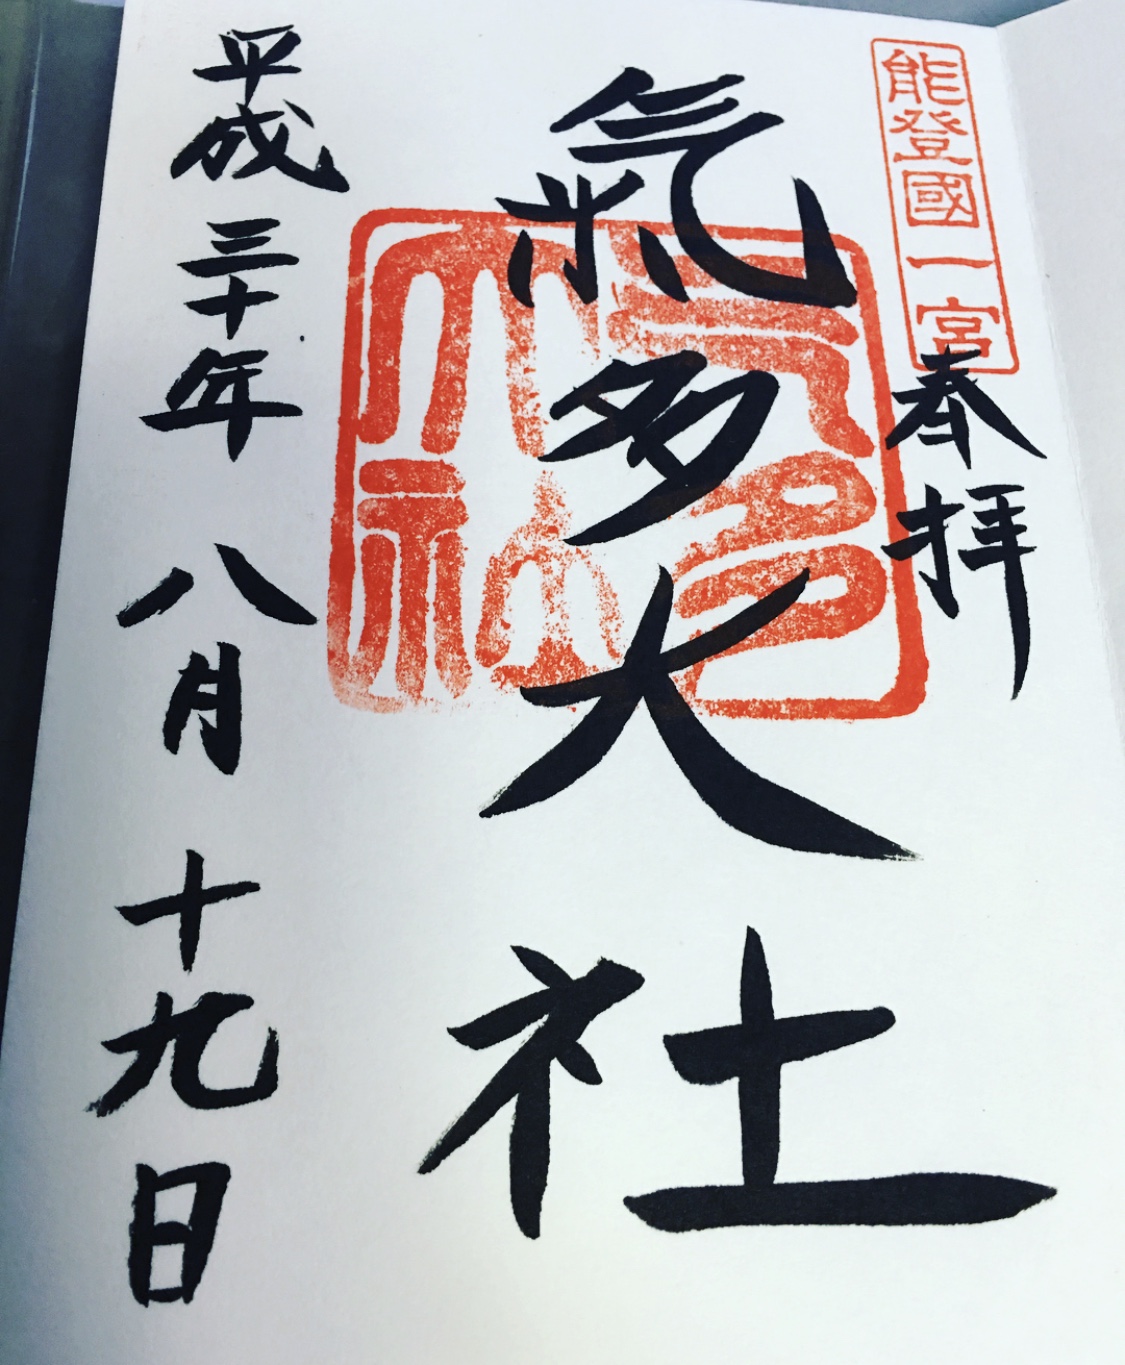 能登國一宮
奉拝
氣多大社
氣多大社
平成三十年八月十九日